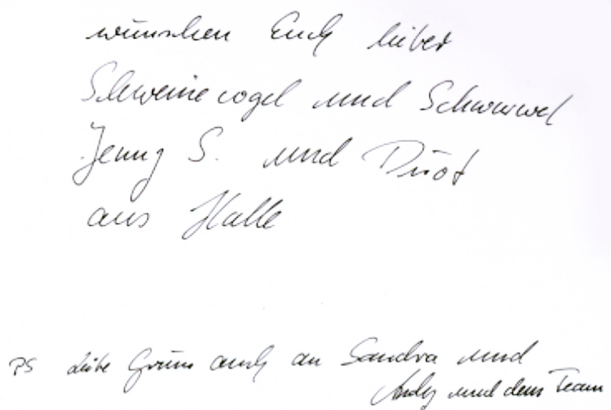 wünschen Euch lieber
Schweinevogel und Schwarwel
Jenny S. und
aus Halle
PS Liebe Grüße auch an Sandra und
Andy und dem Team